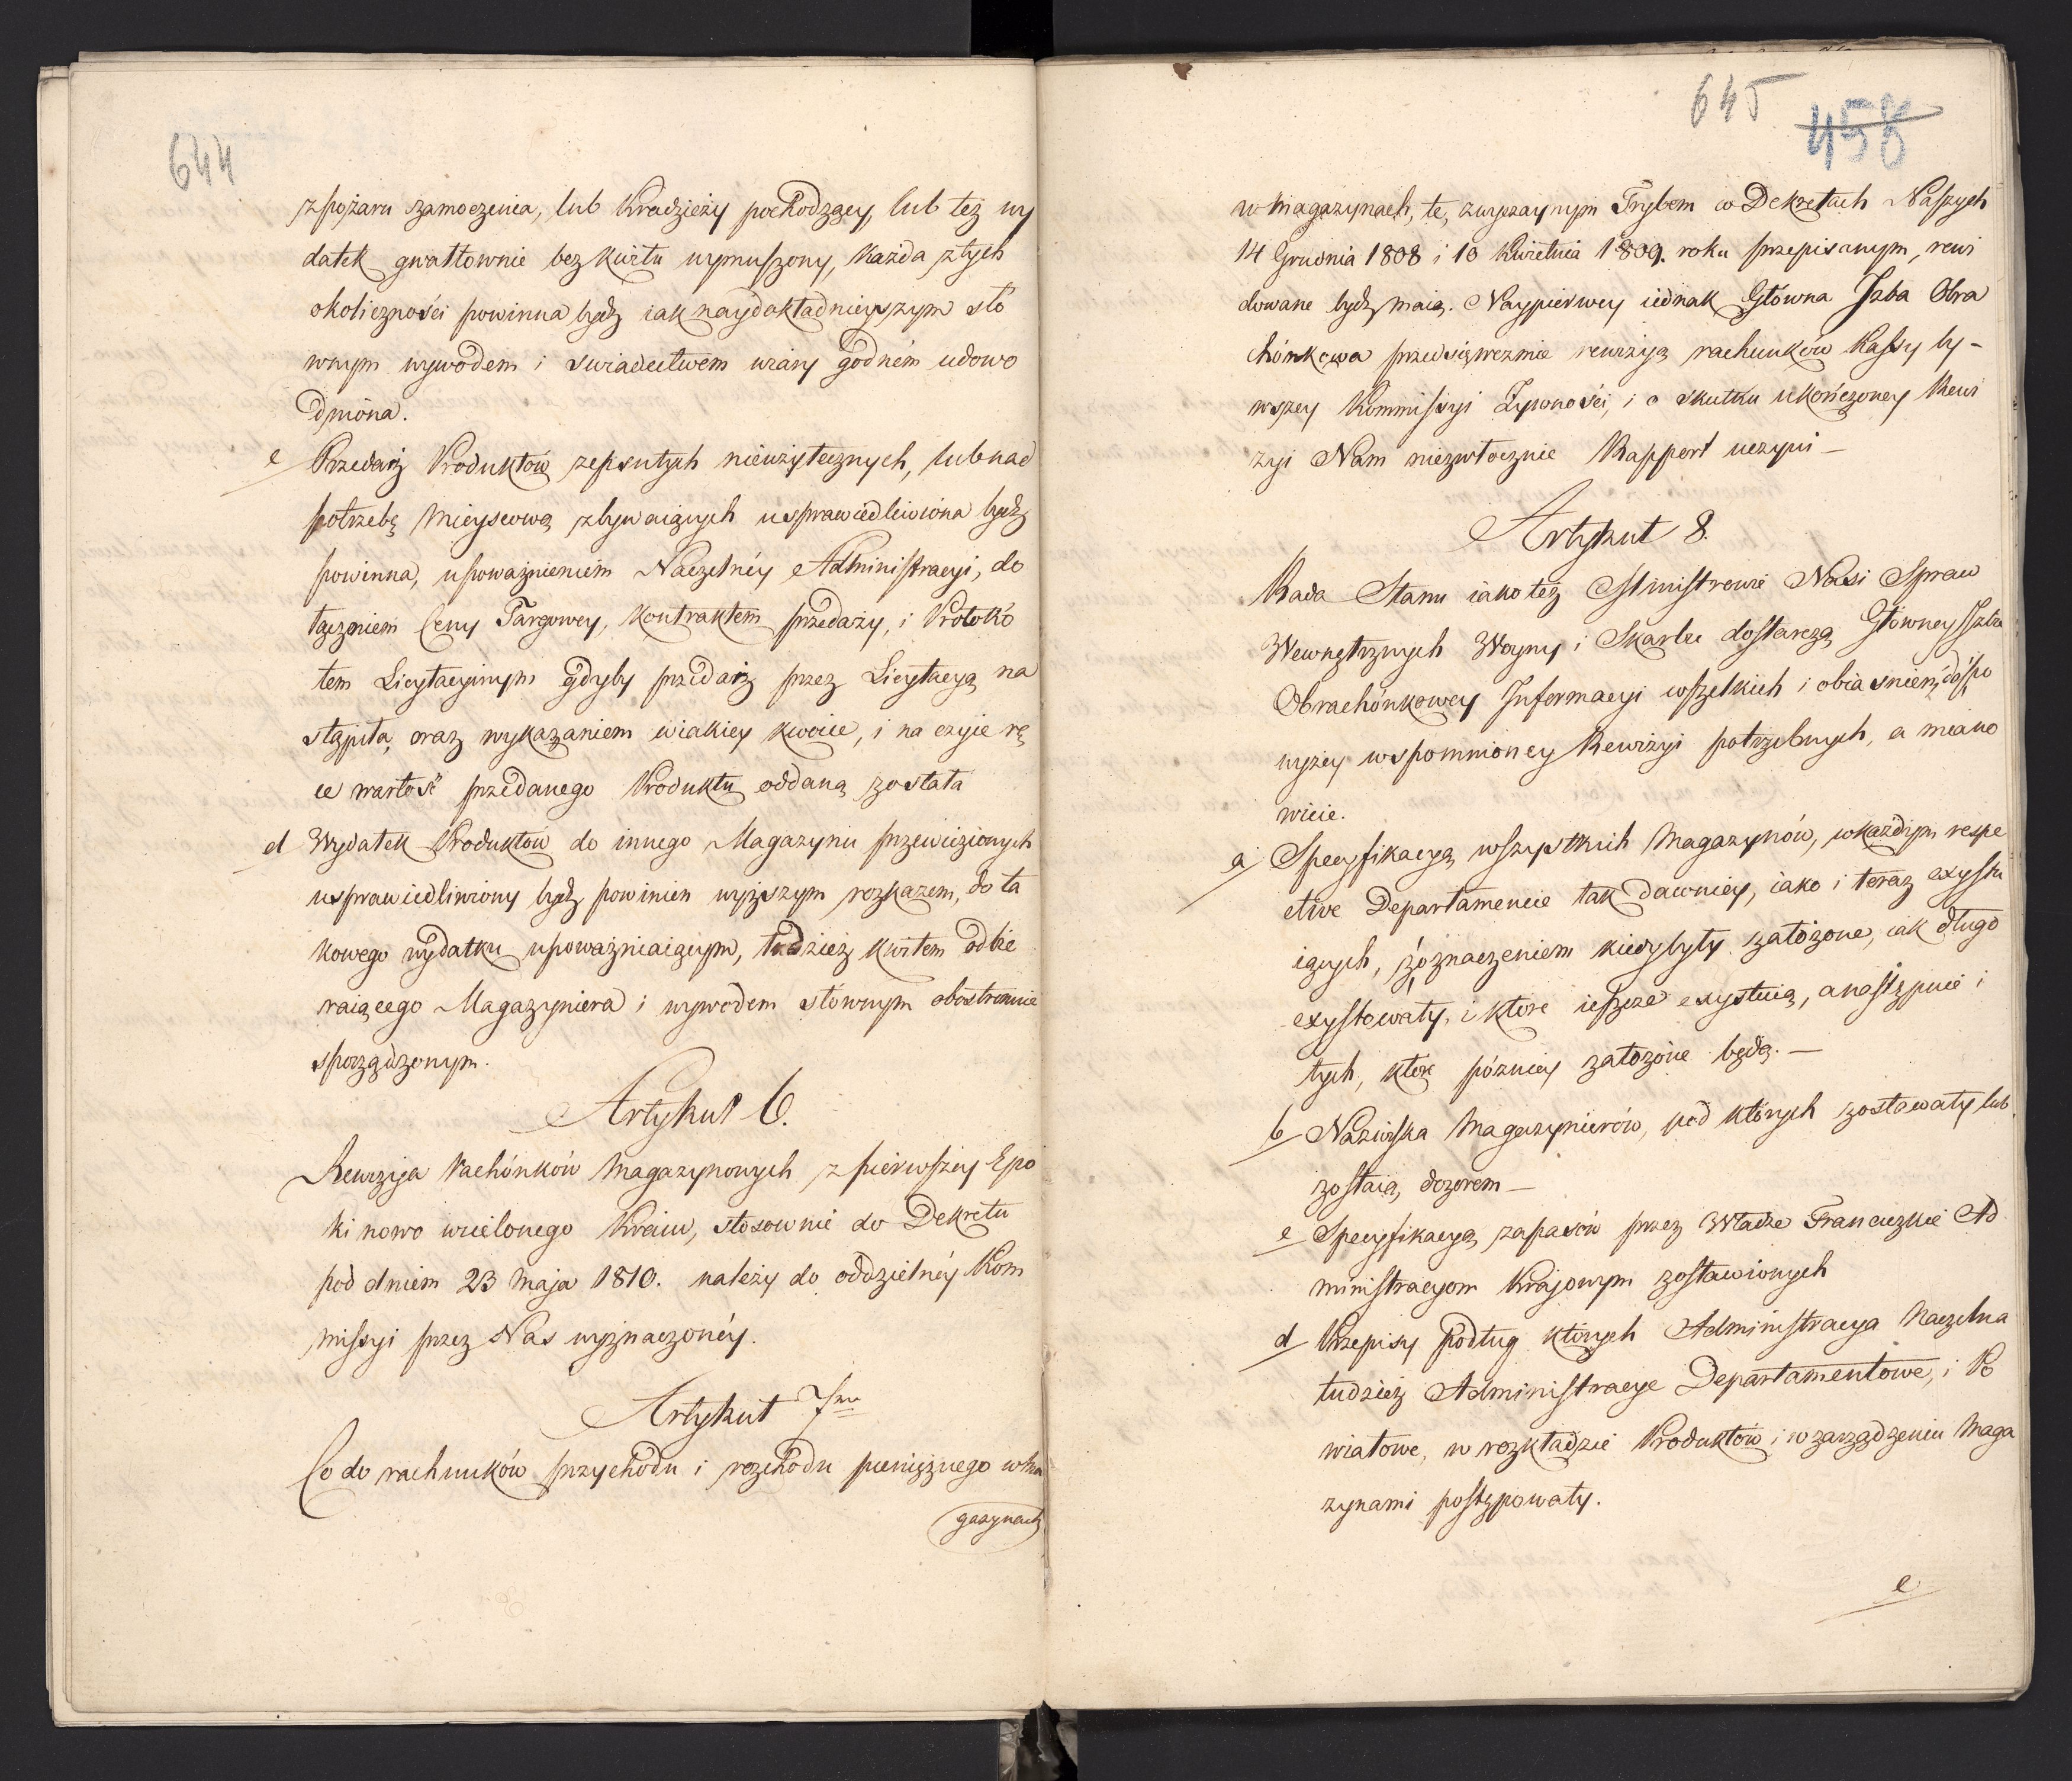 644
z pożaru zamoczenia, lub Kradzieży pochodzący, lub też wy
datek gwałtownie bez kwitu wymuszony, każda z tych
okoliczności powinna bydź iak naydokładnieyszym sło
wnym wywodem i swiadectwem wiary godném udowo
dniona.
c Przedaż Produktów zepsutych nieużytecznych, lub nad
potrzebę mieyscową zbywaiących usprawiedliwiona bydź
powinna, upoważnieniem Naczelnéy Administracyi, do
łączeniem Ceny Targowey, Kontraktem przedaży, i Protokó
łem Licytacyinym gdyby przedaż przez Licytacyą na
stąpiła, oraz wykazaniem w iakiey kwocie, i na czyie rę
ce wartość przedanego Produktu oddaną została
d Wydatek Produktów do innego Magazynu przewiezionych
usprawiedliwiony bydź powinien wyższym rozkazem, do ta
kowego wydatku upoważniaiącym, tudzież kwitem odbie
raiącego Magazyniera i wywodem słownym obostronnie
sporządzonym.
Artykuł 6.
Rewizyia Rachónków Magazynowych z pierwszéy Epo
ki nowo wcielonego Kraiu, stosownie do Dekretu
pod dniem 23 Maja 1810. należy do oddzielnéy Kom
missyi przez Nas wyznaczonéy.
Artykuł 7my
Co do rachunków przychodu i rozchodu pieniężnego w Ma
gazynach
645
458
w Magazynach, te, zwyczaynym Trybem w Dekretach Naszych
14 Grudnia 1808 i 10 Kwietnia 1809. roku przepisanym, rewi
dowane bydź maią. Naypierwey iednak Główna Izba Obra
chónkowa przedsięwezmie rewizyą rachunków Kassy by-
wszey Kommissyi Żywności, i o skutku ukończoney Rewi
zyi Nam niezwłocznie Rapport uczyni —
Artykuł 8.
Rada Stanu iako też Ministrowie Nasi Spraw
Wewnętrznych Woyny i Skarbu dostarczą Główney Izbie
Obrachónkowey Informacyi wszelkich i obiasnień, do po
wyżey wspomnioney Rewizyi potrzebnych, a miano
wicie.
a Specyfikacyą wszystkich Magazynów, w każdym respe
ctive Departamencie tak dawniey, iako i teraz exystu
iących, z oznaczeniem kiedy były założone, iak długo
exystowały, i które ieszcze exystuią, a następnie i
tych, które pózniey założone będą. —
b Naziwska Magazynierów, pod których zostawały lub
zostaią, dozorem —
c Specyfikacyą zapasów przez Władze Francuzkie Ad
ministracyom Krajowym zostawionych
d Przepisy podług których Administracya Naczelna
tudzież Administracye Departamentowe, i Po
wiatowe, w rozkładzie Produktów, i w zarządzeniu Maga
zynami postępowały.
e